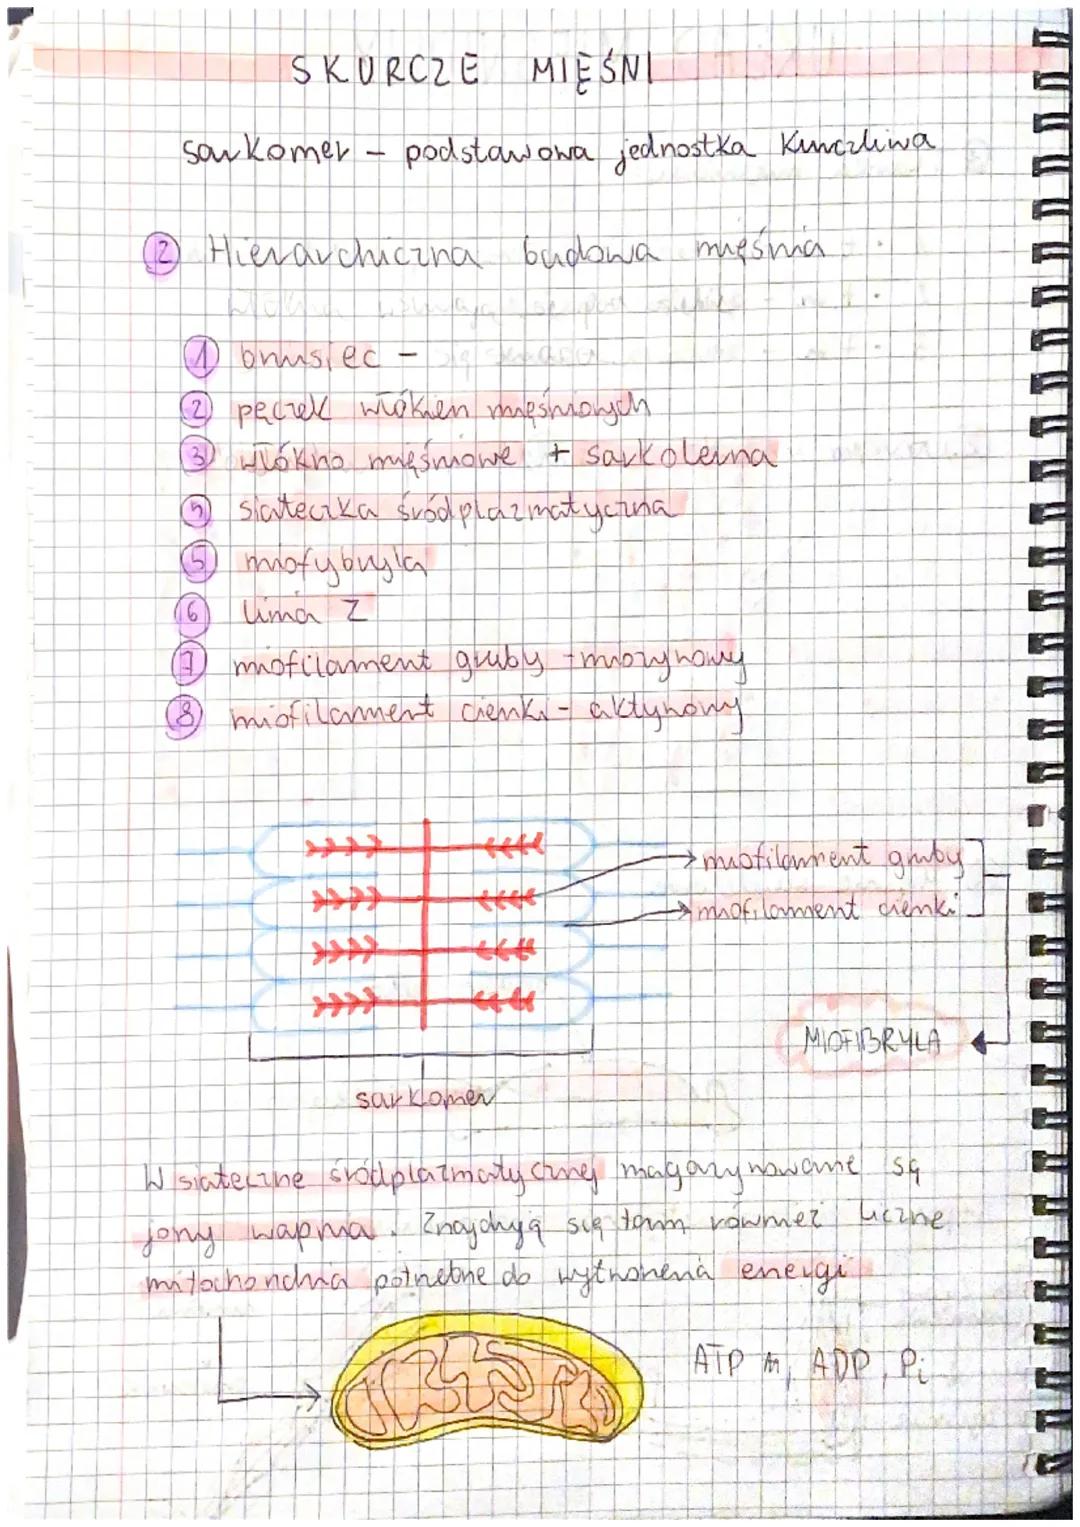 SKURCZE MIĘŚNI
sarkomer - podstawowa jednostka kurczliwa
2 Hierarchiczna budowa mięśnia
1 brzusiec -
2 pęczek włókien mięśniowych
3 włókno mięśniowe + sarkolema
4 siateczka śródplazmatyczna
5 miofybryla
6 linia Z
7 miofilament gruby - miozynowy
8 miofilament cienki - aktynowy
miofilament gruby
miofilament cienki
MIOFIBRYLA
sarkomer
W siateczne śródplazmatycznej magazynowane są
jony wapnia. Znajdują się tam również liczne
mitochondria potrzebne do wytworzenia energi
ATP, ADP, Pi